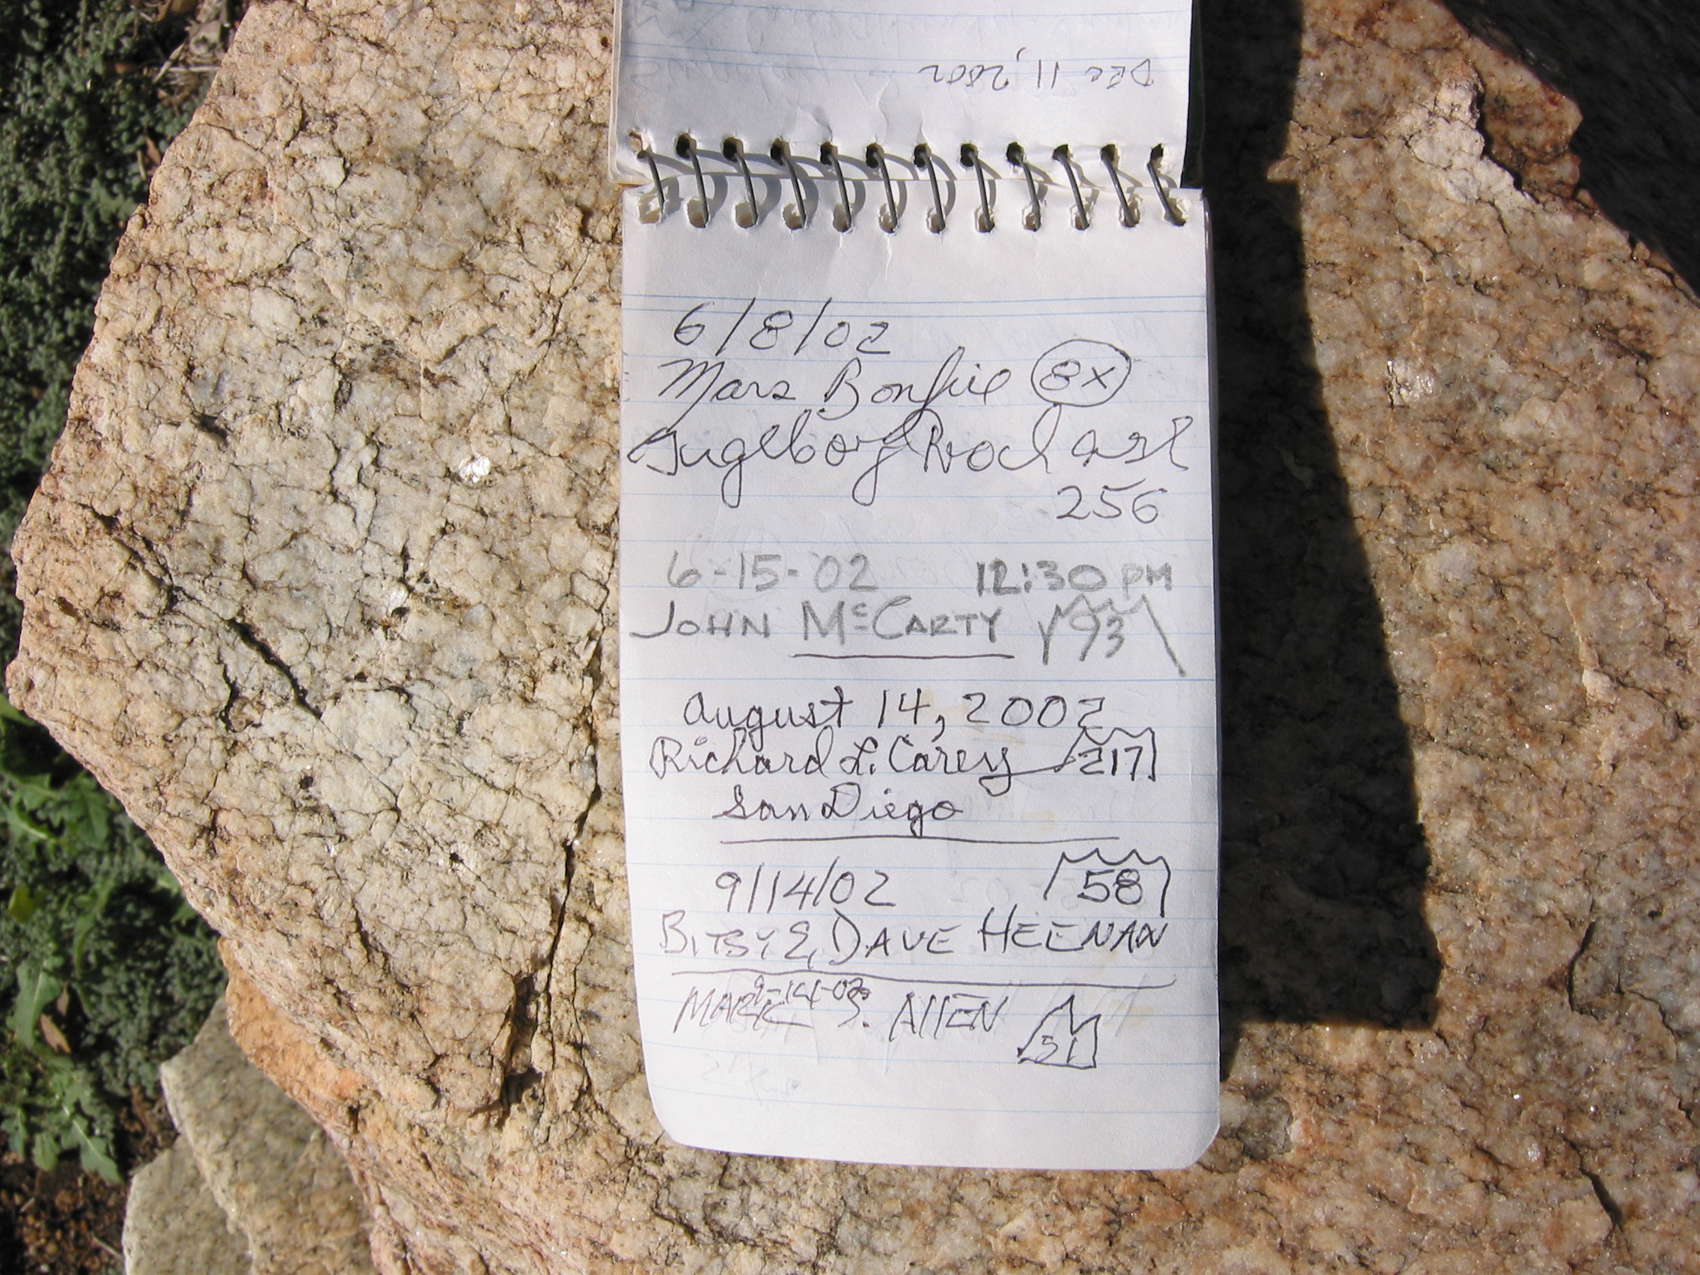 DEC 11, 2002
6/8/02
Mars Bonfire 8X
256
6-15-02 12:30 PM
JOHN McCARTY 93
August 14, 2002
Richard L. Carey 217
San Diego
9/14/02 58
BITSY & DAVE HEENAN
9-14-02
MARK S. AllEN 51